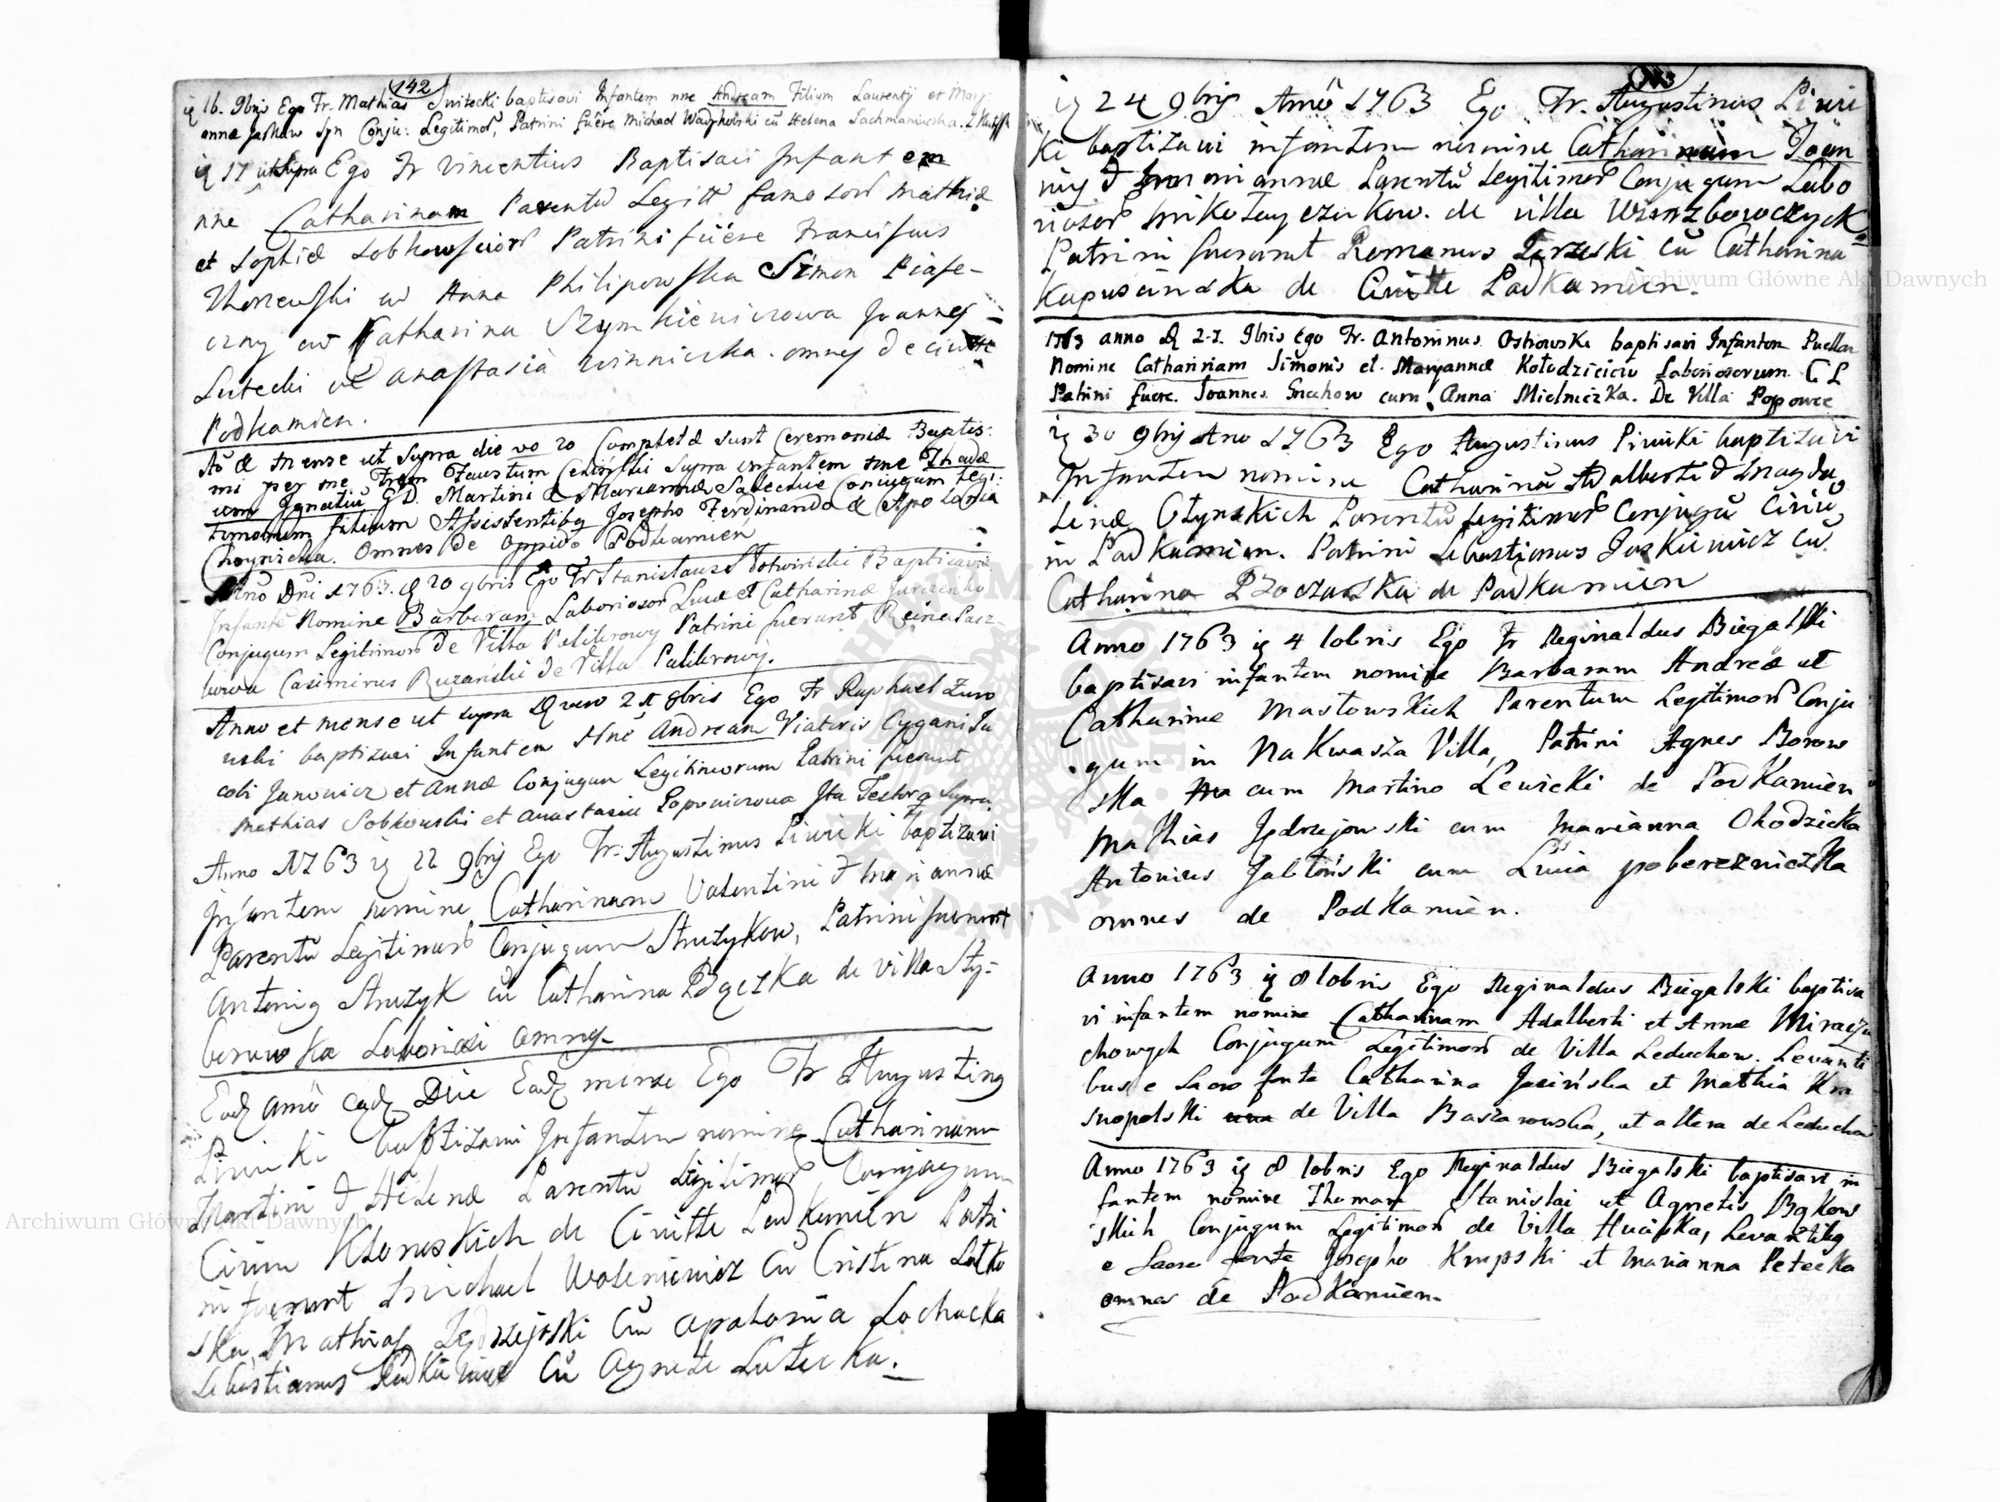 142
ię 16. 9bris Ego Fr. Mathias Switecki baptisavi Infantem nne Andream Filium Laurentij et Mary
annæ Jaskow Spn Conju: Legitimor, Patrini fuere Michael Wadykowski cū Helena Lachmaniuska.
ię 17 ut supra Ego Fr Vincentius Baptisavi Infantem
nne Catharinam Parentū Legitt famosor Mathiæ
et Sophiæ Sobkowsciorū Patrini fuere Franciscus
Thorzewski cū Anna Philipowska Simon Piase-
czny cū Catharina Szymkiewiczowa Joannes
Lutecki cū Anastasia Winniczka. omnes de civitte
Podkamien.
Ao & mense ut supra die vo 20 Completæ sunt Ceremoniæ Baptis:
mi per me Frem Faustum supra infantem nne Thadæ
um Ignatiū GD. Martini & Mariannæ Sadeckie Conjugum Legi:
timorum filium Assistentibq Josepho Ferdinando & Apolonia
Choynicka. Omnes De Oppido Podkamień
Anno Dni 1763. ię 20 9bris Ego Fr Stanislaus Baptisavi
Infantē Nomine Barbaram Laboriosor Lucæ et Catharinæ Jurczenko
Conjugum Legitimorū De Villa Palikrowy Patrini fuerunt
Casimirus Ruzański de Villa Palikrowy.
Anno et mense ut supra ię vero 21 9bris Ego Fr Raphael Zuro
wski baptizavi Infantem Nnē Andream Viatoris Cygani Ja
cobi Janowicz et Annæ Conjugum Legitimorum Patrini fuerunt
Mathias Sobkowski et Anastasia Popowiczowa Ita Testor q Supra
Anno 1763 ię 22 9bris Ego Fr. Augustinus Piwiki baptizavi
Infantem nomine Catharinam Valentini & Mariannæ
Parentū Legitimorū Conjugum Struzykow, Patrini fuerunt
Antonig Struzyk cū Catharina Bączka de villa Sty-
berowka Laboriosi omnes.
Eodē anno eadē Die Eodē mense Ego Fr Augusting
Piwiki baptizavi Infantem nomine Catharinam
Martini & Helenæ Parentū Legitimorū Conjugum
Civium Klonoskich de Civitte Podkamień Patri
ni fuerunt Michael Woleniewicz cū Cristina Lotko
ska, Mathias Jędrzejoski cū Apolonia Lochacka
Sebastianus cū Agnete Lutecka.
143
ię 24 9bris Anno 1763 Ego Fr. Augustinus Piwi
ki baptizavi infantem nomine Catharinam Joan
nis & Mariannæ Parentū Legitimorū Conjugum Labo
riosor Mikołayczukow. de villa Wierzbowczyck
Patrini fuerunt Romanus Gorzeski cū Catharina
Kapuscinska de Civitte Podkamien.
1763 anno ię 27. 9bris Ego Fr. Antoninus Ostrowski baptisavi Infantem Puellam
Nomine Catharinam Simonis et Maryannæ Kołodzieiow Laboriosorum C L
Patrini fuere. Joannes Suchow cum Anna Mielniczka. De Villa Popowce
ię 30 9bris Ano 1763 Ego Augustinus Piwiki baptizavi
Infantem nomine Catharinā Adalberti & Magda
lenæ Głynskich Parentū Legitimorū Conjugū Civiū
in Podkamien. Patrini Sebastianus Jaskiewicz cū
Catharina Bzoczaska de Podkamien
Anno 1763 ię 4 10bris Ego Fr Reginaldus Biegalski
baptisavi infantem nomine Barbaram Andreæ et
Catharinæ Masłowskich Parentum Legitimorū Conju
gum in Nakwasza Villa, Patrini Agnes Borow
ska cum Martino Lewicki de Podkamien
Mathias Jędrzejowski cum Marianna Chodzicka
Antonius Jabłoński cum Lucia pobereżniczka
omnes de Podkamien.
Anno 1763 ię 8 10bris Ego Reginaldus Biegalski baptisa
vi infantem nomine Catharinam Adalberti et Annæ Miraczu
chowych Conjugum Legitimorū de Villa Leduchow. Levanti
bus e Sacro fonte Catharina Jasińska et Mathia Kra
snopolski de Villa Baszarowska, et altera de Leduchow
Anno 1763 ię 8 10bris Ego Reginaldus Biegalski baptisavi in
fantem nomine Thomam Stanislai et Agnetis Bąkow
skich Conjugum Legitimorū de Villa Hucipka, Levantibq
e Sacro fonte Josepho Krupski et Marianna Petecka
omnes de Podkamien.
Archiwum Główne Akt Dawnych
Archiwum Główne Akt Dawnych